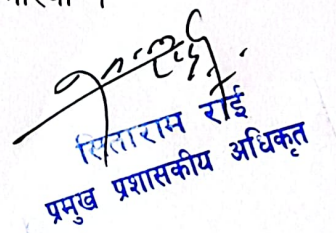 सिताराम राई
प्रमुख प्रशासकीय अधिकृत